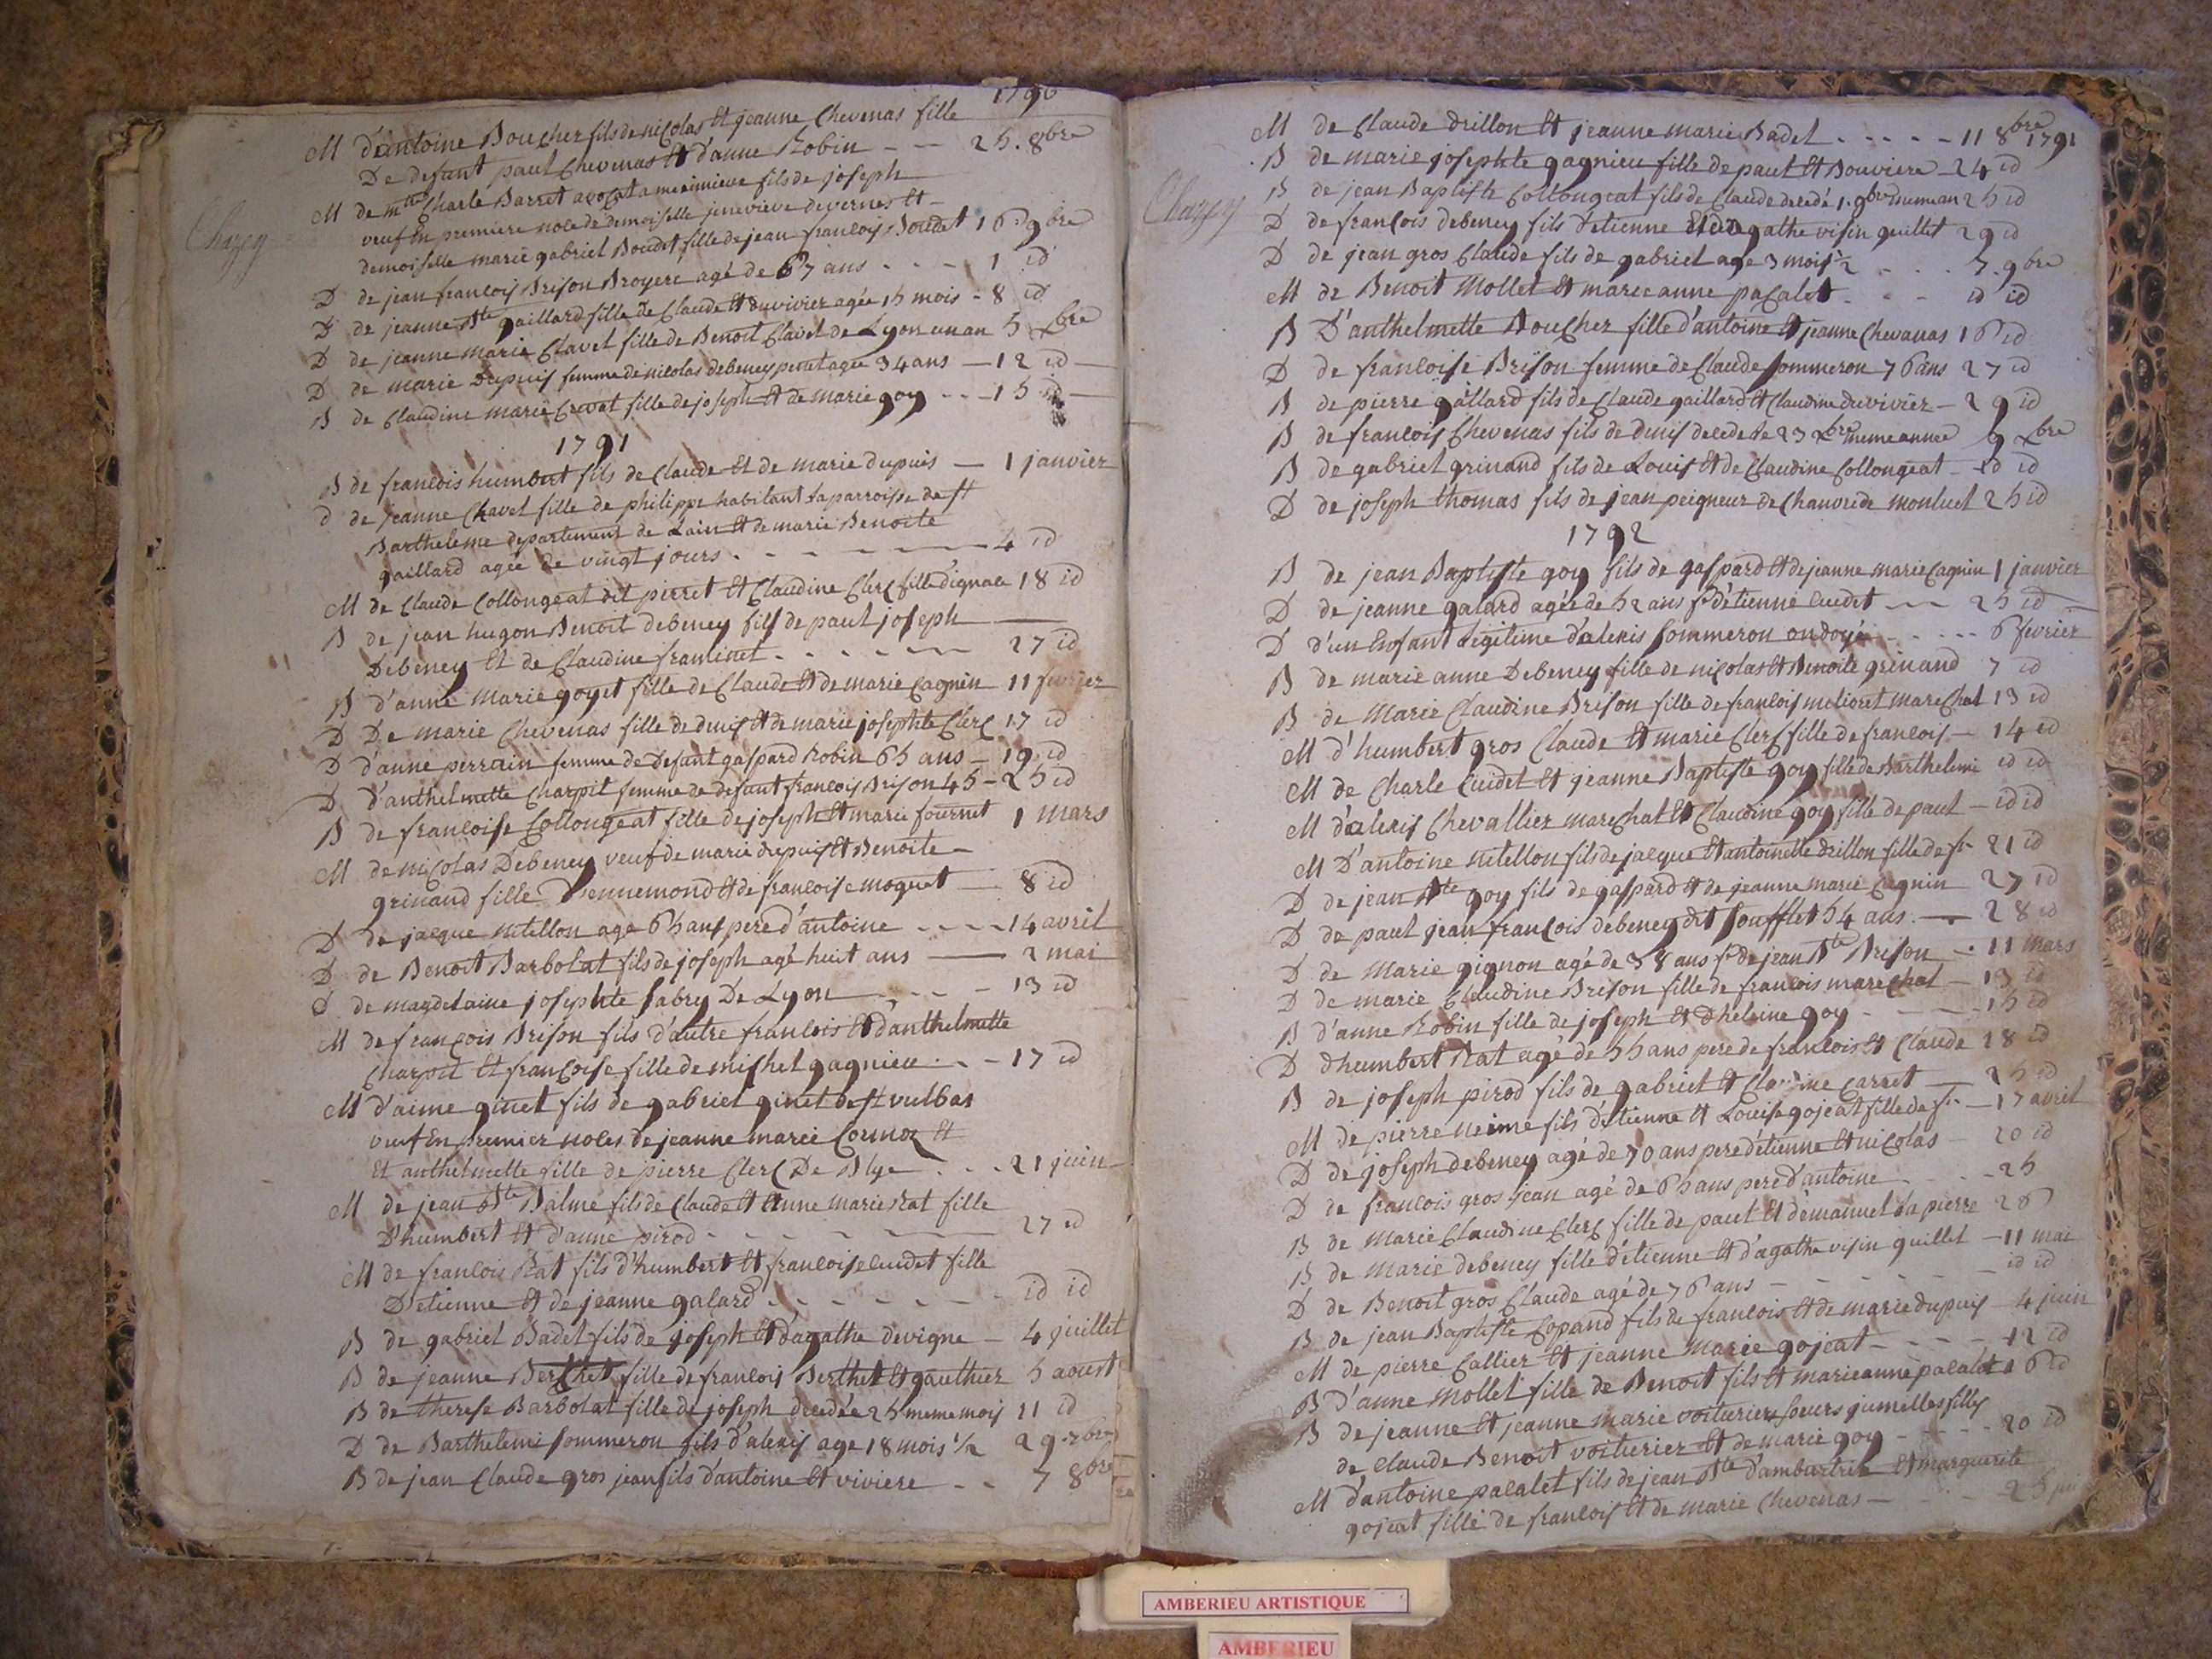 1790
M d'antoine Boucher fils de nicolas Et jeanne Chevenas fille
De defunt paul Chevenas Et d'anne Robin - - 25. 8bre
Chazey
M de mtre Charle Barret avocat a meximieux fils de joseph
veuf En premiere noce de demoiselle jenevieve devernes Et -
demoiselle marie gabriel Boudet fille de jean francois Boudet 16. 9bre
D de jean francois Brison Broyere agé de 67 ans - - - 1 id
D de jeanne Bte gaillard fille de Claude Et duvivier agée 15 mois - 8 id
D de jeanne marie Clavel fille de Benoit Clavel de Lyon un an 5 xbre
D de marie dupuis femme de nicolas debeney petit agée 34 ans - 12 id
B de Claudine marie Crevat fille de joseph Et de marie goy - - 15 id
1791
B de francois humbert fils de Claude Et de marie dupuis - 1 janvier
d de jeanne Chavel fille de philippe habitant la parroisse de st
Bartheleme departement de Lain Et de marie Benoite
gaillard agée de vingt jours - - - 4 id
M de Claude Collongeat dit pierret Et Claudine Clerc fille d'ignace 18 id
B de jean hugon Benoit debeney fils de paul joseph
Debeney Et de Claudine framinet - - - 27 id
B d'anne Marie goyet fille de Claude Et de marie Cagnin 11 fevrier
D De marie Chevenas fille de denis Et de marie josephte Clerc 17 id
D d'anne perrain femme de Defunt gaspard Robin 65 ans - 19 id
D d'anthelmette Charpit femme de defunt francois Brison 45 - 25 id
B de francoise Collongeat fille de joseph Et marie fournet 1 mars
M de nicolas Debeney veuf de marie dupuis Et Benoite -
grinand fille Dennemond Et de francoise moquet - 8 id
D de jacque nitellon age 65 ans pere d'antoine - - - 14 avril
D de Benoit Barbolat fils de joseph agé huit ans - 2 mai
D de magdelaine josephte fabry De Lyon - - - 13 id
M de francois Brison fils d'autre francois Et d'anthelmette
Charpit Et francoise fille de michel gagnieu - - 17 id
M d'aime ginet fils de gabriel ginet de st vulbas
veuf En premier noces de jeanne marie Et
Et anthelmette fille de pierre Clerc De Blye - - - 21 juin
M de jean Bte Balme fils de Claude Et Anne marie Rat fille
D'humbert Et d'anne pirod - - - 27 id
M de francois Rat fils d'humbert Et francoise cuidet fille
Detienne Et de jeanne galard - - - id id
B de gabriel Badel fils de joseph Et d'agathe devigne - 4 juillet
B de jeanne Berthet fille de francois Berthet Et gauthier 5 aoust
B de therese Barbolat fille de joseph decedée 25 meme mois 11 id
D de Barthelemi sommeron fils d'alexis age 18 mois 1/2 29 7bre
B de jean Claude gros jean fils d'antoine Et viviere - - 7 8bre
M de Claude drillon Et jeanne marie Badel - - - - 11 8bre 1791
B de marie josephte gagnieu fille de paul Et Bouviere - 24 id
Chazey
B de jean Baptiste Collongeat fils de Claude decedé 1. 9bre meme an 25 id
D de francois debeney fils d'etienne Et d'agathe visin guillet 29 id
D de jean gros Claude fils de gabriel age 3 mois 1/2 - - - 7. 9bre
M de Benoit Mollet Et marie anne pacalet - - - id id
B D'anthelmette Boucher fille d'antoine Et jeanne Chevanas 16 id
D de francoise Brison femme de Claude sommeron 76 ans 27 id
B de pierre gallard fils de Claude gaillard Et Claudine duvivier - 29 id
B de francois Chevenas fils de denis decede le 23 xbre meme annee 9 xbre
B de gabriel grinand fils de Louis Et de Claudine Collongeat - id id
D de joseph thomas fils de jean peigneur de Chanvre de monluel 25 id
1792
B de jean Baptiste goy fils de gaspard Et de jeanne marie Cagnin 1 janvier
D de jeanne galard agée de 52 ans fe d'etienne cuidet - - 25 id
D d'un Enfant legitime d'alexis sommeron ondoyé - - - - 6 fevrier
B de marie anne Debeney fille de nicolas Et Benoite grinand 7 id
B de Marie Claudine Brison fille de francois melioret marechal 13 id
M d'humbert gros Claude Et marie Clerc fille de francois - 14 id
M de Charle Cuidet Et jeanne Baptiste goy fille de Barthelemi id id
M d'alexis Chevallier marechal Et Claudine goy fille de paul - id id
M D'antoine nitellon fils de jacque Et antoinette drillon fille de fr. 21 id
D de jean Bte goy fils de gaspard Et de jeanne marie Cagnin 27 id
D de paul jean francois debeney dit soufflet 54 ans - 28 id
D de Marie gignon agé de 38 ans fe de jean Bte Brison - 11 mars
D de marie Claudine Brison fille de francois marechal - 13 id
B d'anne Robin fille de joseph Et d'heleine goy - - - 15 id
D D'humbert Rat agé de 55 ans pere de francois Et Claude 18 id
B de joseph pirod fils de gabriel Et Claudine Carret - 25 id
M de pierre neime fils d'etienne Et Louise gojeat fille de fr. - 17 avril
D de joseph debeney agé de 70 ans pere d'etienne Et nicolas - 20 id
D de francois gros jean agé de 65 ans pere d'antoine - - - 25
B de marie Claudine Clerc fille de paul Et d'emanuel La pierre 26
B de Marie debeney fille d'etienne Et d'agathe visin guillet - 11 mai
D de Benoit gros Claude agé de 76 ans - - - id id
B de jean Baptiste Copand fils de francois Et de marie dupuis 4 juin
M de pierre Callier Et jeanne Marie gojeat - - - 12 id
B d'anne Mollet fille de Benoit fils Et marie anne pacalet 16 id
B de jeanne Et jeanne marie voiturier soeurs jumelles filles
de Claude Benoit voiturier Et de marie goy - - - 20 id
M d'antoine pacalet fils de jean Bte d'ambutrix Et marguerite
gojeat fille de francois Et de marie Chevenas - - - 25
AMBERIEU ARTISTIQUE
AMBERIEU